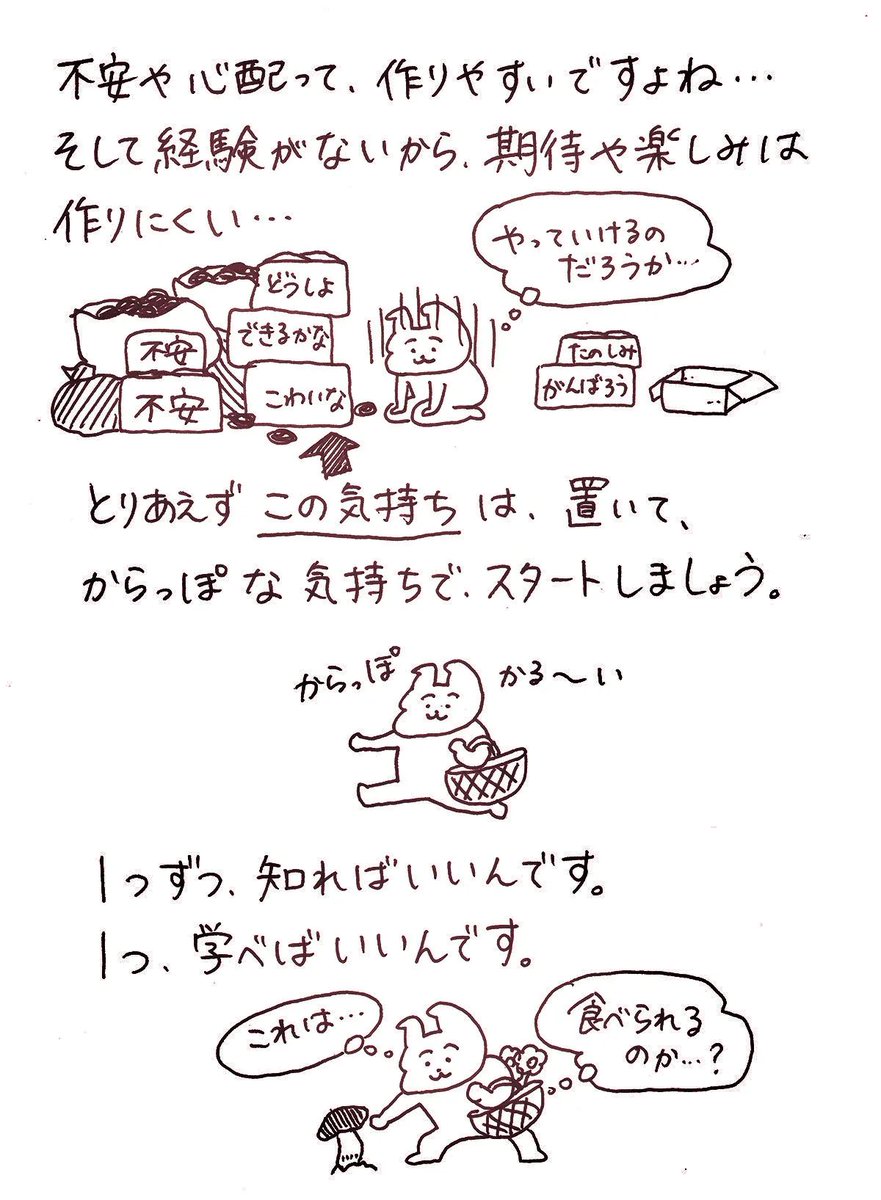 不安や心配って、作りやすいですよね…
そして経験がないから、期待や楽しみは
作りにくい…
やっていけるの
だろうか…
どうしよ
できるかな
不安
不安
こわいな
たのしみ
がんばろう
とりあえず この気持ち は、置いて、
からっぽ な 気持ちで、スタートしましょう。
からっぽ
かる〜い
1つずつ、知ればいいんです。
1つ、学べばいいんです。
これは…
食べられる
のか…?